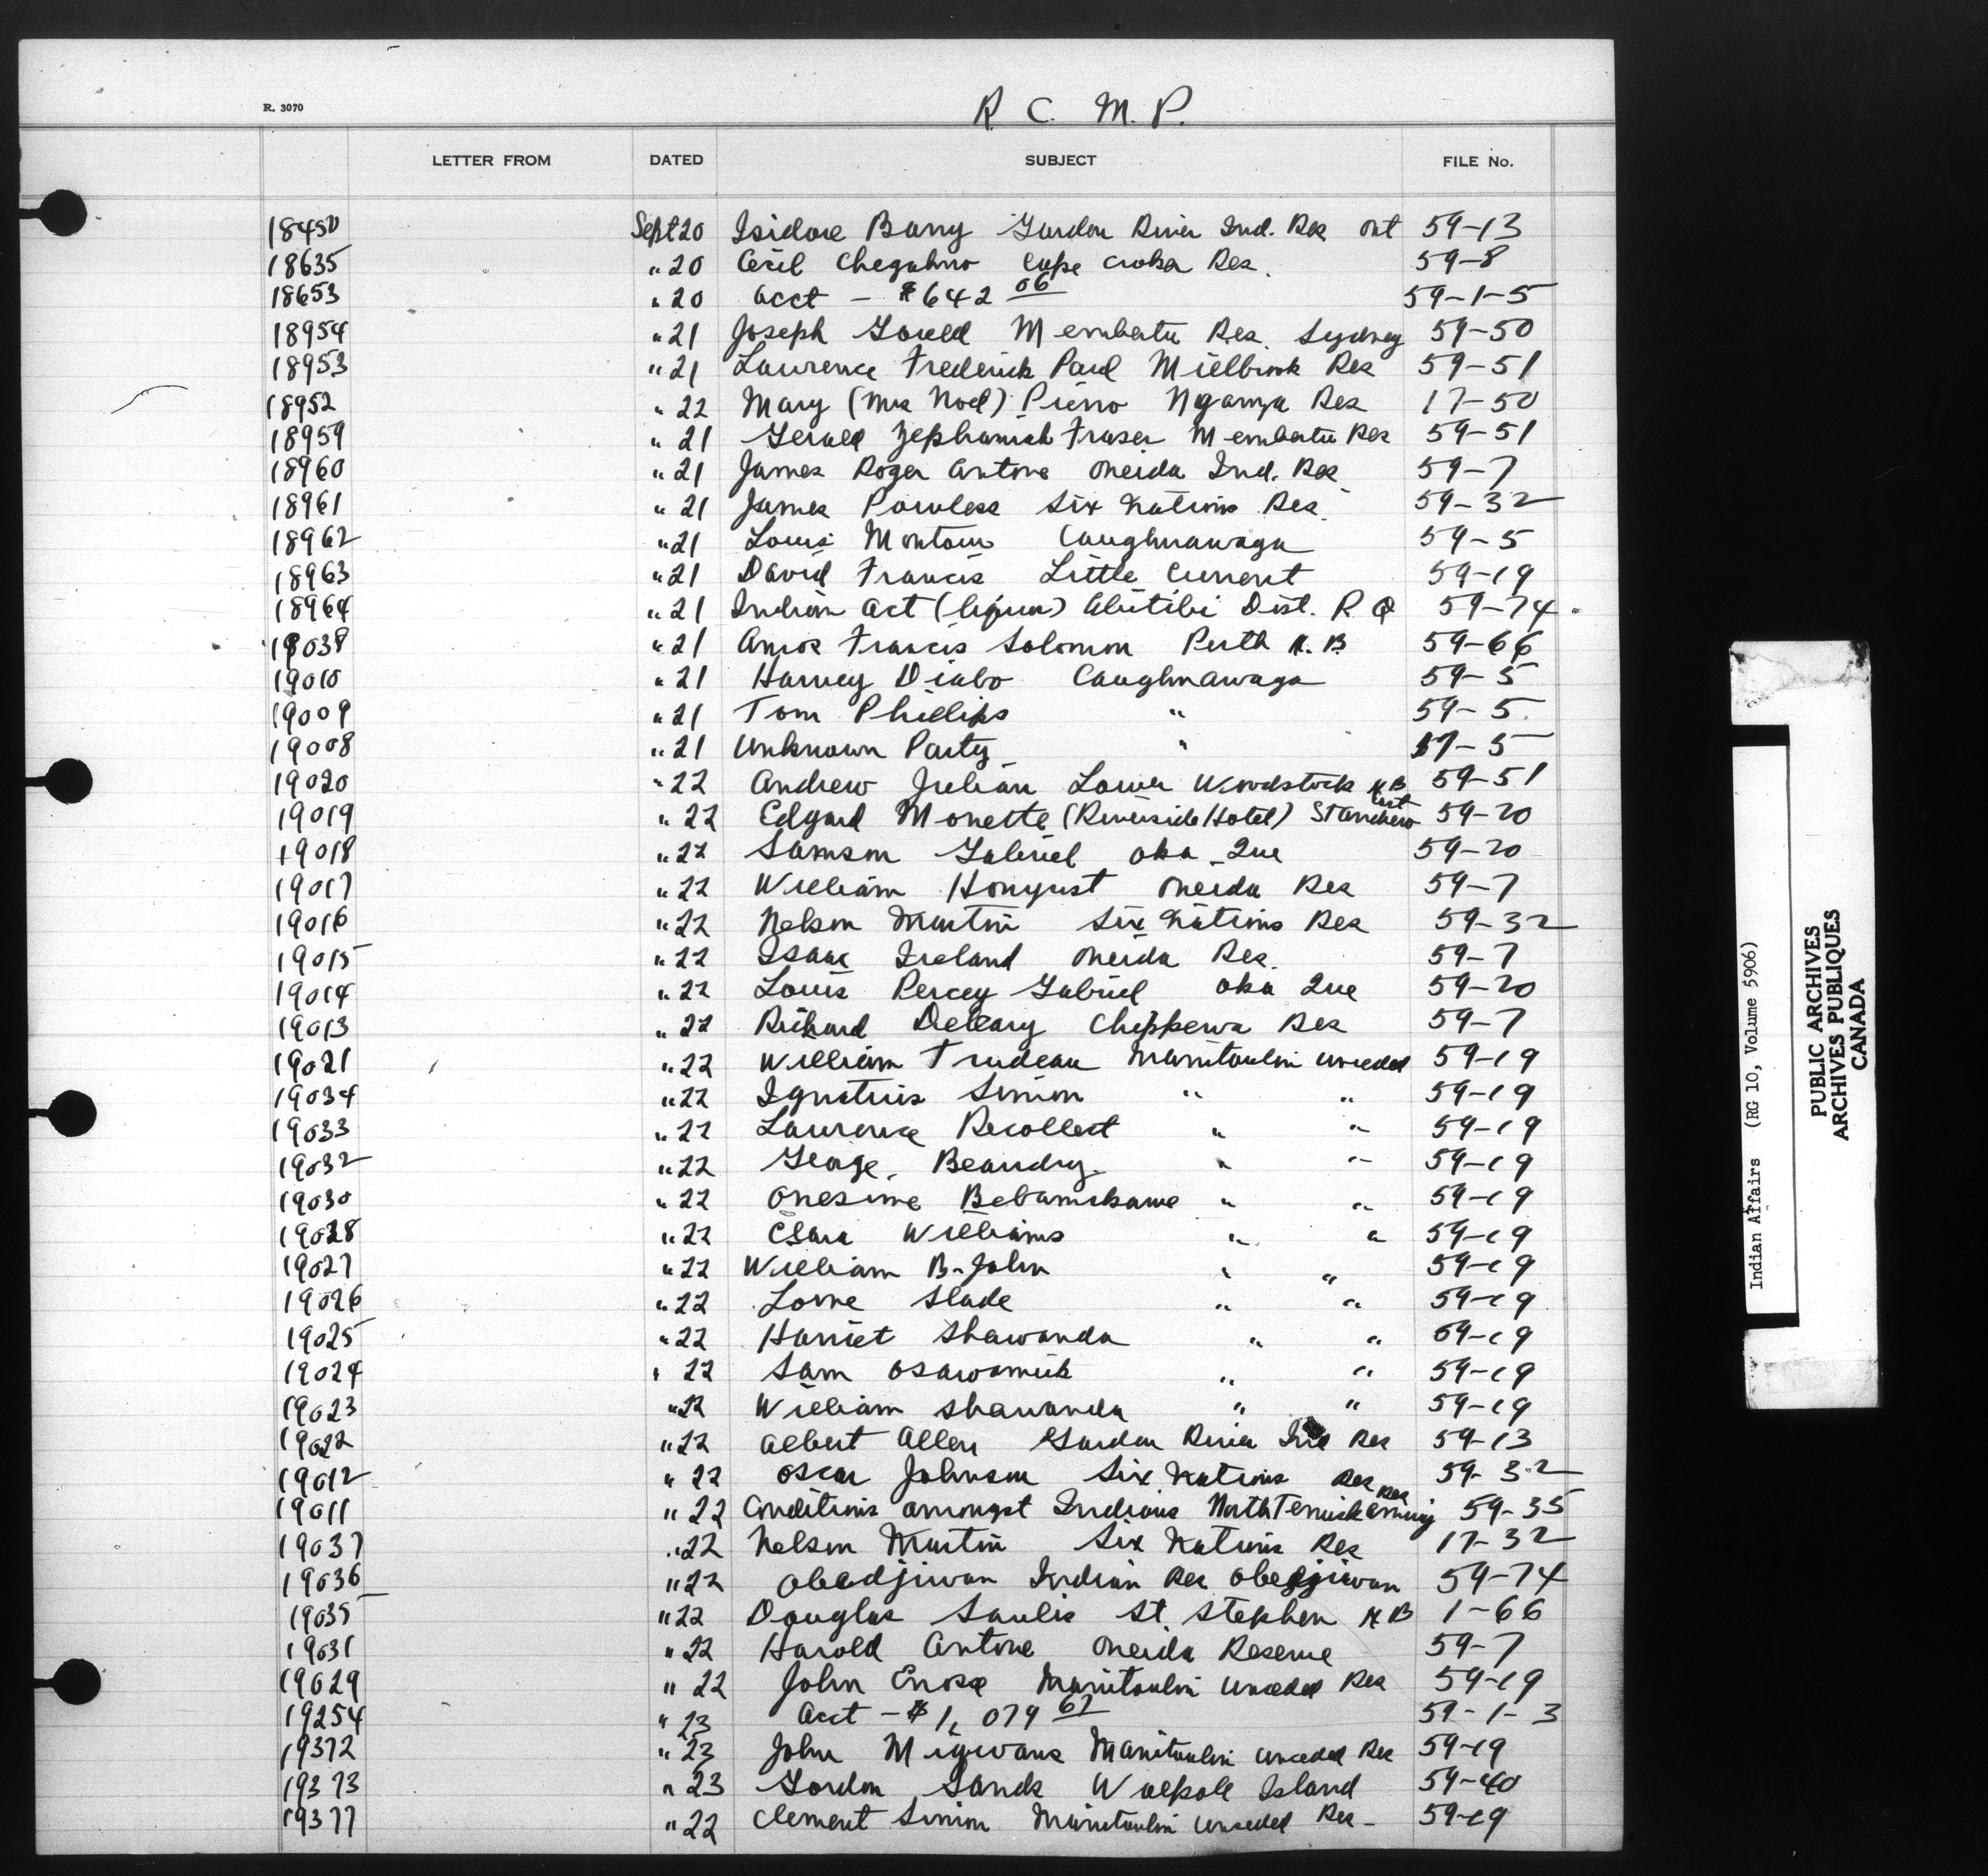 R. 3070
R. C. M. P.
LETTER FROM DATED SUBJECT FILE No.
18450 Sept 20 Isidore Barry Garden River Ind. Res Ont 59-13
18635 " 20 Cecil Chegahno Cape Croker Res. 59-8
18653 " 20 Acct - $642 06 59-1-5
18954 " 21 Joseph Gould Membertu Res. Sydney 59-50
18953 " 21 Lawrence Frederick Paul Millbrook Res 59-51
18952 " 22 Mary (Mrs Noel) Pierro Res 17-50
18959 " 21 Gerald Zephaniah Fraser Membertu Res 59-51
18960 " 21 James Roger Antone Oneida Ind. Res 59-7
18961 " 21 James Powless Six Nations Res. 59-32
18962 " 21 Louis Montour Caughnawaga 59-5
18963 " 21 David Francis Little Current 59-19
18964 " 21 Indian Act (liquor) Abitibi Dist. P Q 59-74
19038 " 21 Amos Francis Solomon Perth N.B. 59-66
19010 " 21 Harvey Diabo Caughnawaga 59-5
19009 " 21 Tom Phillips " 59-5
19008 " 21 Unknown Party " 17-5
19020 " 22 Andrew Julian Lower Woodstock NB 59-51
19019 " 22 Edgard Monette (Riverside Hotel) St Andrew East 59-20
19018 " 22 Samson Gabriel Oka Que 59-20
19017 " 22 William Honyust Oneida Res 59-7
19016 " 22 Nelson Martin Six Nations Res 59-32
19015 " 22 Isaac Ireland Oneida Res. 59-7
19014 " 22 Louis Percey Gabriel Oka Que 59-20
19013 " 22 Richard Deleary Chippewa Res 59-7
19021 " 22 William Trudeau Manitoulin Unceded 59-19
19034 " 22 Ignatius Simon " " 59-19
19033 " 22 Lawrence Recollect " " 59-19
19032 " 22 George Beaudry " " 59-19
19030 " 22 Onesime Bebamikawe " " 59-19
19028 " 22 Williams " " 59-19
19027 " 22 William B-John " " 59-19
19026 " 22 Lorne Slade " " 59-19
19025 " 22 Harriet Shawanda " " 59-19
19024 " 22 Sam Osawamick " " 59-19
19023 " 22 William Shawanda " " 59-19
19022 " 22 Albert Allen Garden River Ind Res 59-13
19012 " 22 Oscar Johnson Six Nations Res 59-32
19011 " 22 Conditions amongst Indians North Temiskaming Res 59-35
19037 " 22 Nelson Martin Six Nations Res 17-32
19036 " 22 Obedjiwan Indian Res Obedjiwan 59-74
19035 " 22 Douglas Saulis St. Stephen NB 1-66
19031 " 22 Harold Antone Oneida Reserve 59-7
19029 " 22 John Enose Manitoulin Unceded Res 59-19
19254 " 23 Acct - $1,079 67 59-1-3
19372 " 23 John Migwans Manitoulin Unceded Res 59-19
19373 " 23 Gordon Sands Walpole Island 59-40
19377 " 22 Clement Simon Manitoulin Unceded Res - 59-19
Indian Affairs (RG 10, Volume 5906)
PUBLIC ARCHIVES
ARCHIVES PUBLIQUES
CANADA